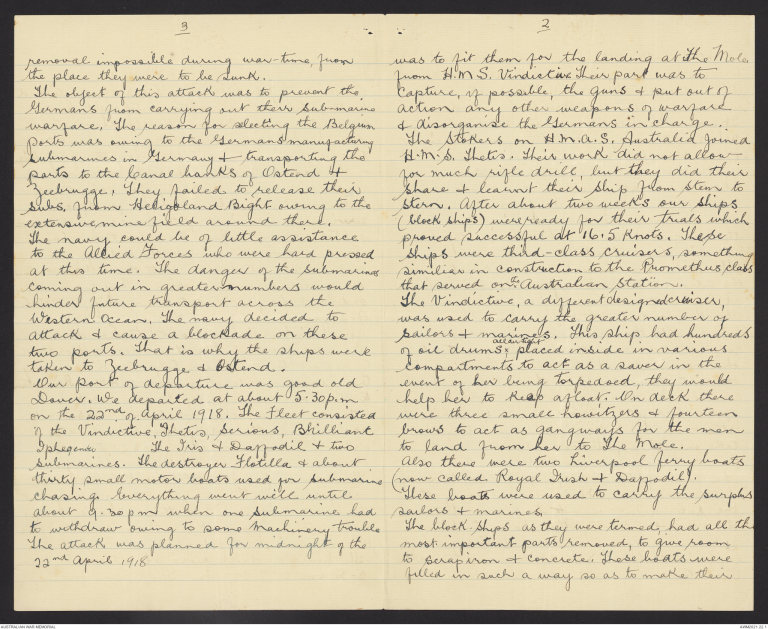 2
was to fit them for the landing at The Mole
from H.M.S. Vindictive. Their part was to
capture, if possible, the guns & put out of
action any other weapons of warfare
& disorganise the Germans in charge.
The Stokers on H.M.A.S. Australia joined
H.M.S. Thetis. Their work did not allow
for much rifle drill, but they did their
share & learnt their ship from stem to
stern. After about two weeks our ships
(block ships) were ready for their trials which
proved successful at 16.5 knots. These
ships were third-class cruisers, something
similiar in construction to the Promethus class
that served on the Australian Station.
The Vindictive, a different designed cruiser,
was used to carry the greater number of
sailors & marines. This ship had hundreds
of oil drums, all airtight placed inside in various
compartments to act as a saver in the
event of her being torpedoed, they would
help her to keep afloat. On deck there
were three small howitzers & fourteen
brows to act as gangways for the men
to land from her to The Mole.
Also there were two Liverpool ferry boats
now called Royal Irish & Daffodil).
These boats were used to carry the surplus
sailors & marines
The block ships as they were termed, had all the
most important parts removed, to give room
to scrapiron & concrete. These boats were
filled in such a way so as to make their
3
removal impossible during war-time, from
the place they were to be sunk.
The object of this attack was to prevent the
Germans from carrying out their submarine
warfare. The reason for slecting the Belgium
ports was owing to the Germans manufacturing
submarines in Germany & transporting the
parts to the Canal banks of Ostend &
Zeebrugge. They failed to release their
subs. from Heligoland Bight owing to the
extensive mine field around there.
The navy could be of little assistance
to the Allied Forces who were hard pressed
at this time. The danger of the submarines
coming out in greater numbers would
hinder future transport across the
Western Ocean. The navy decided to
attack & cause a blockade on these
two ports. That is why the ships were
taken to Zeebrugge & Ostend.
Our port of departure was good old
Dover. We departed at about 5.30 p.m
on the 22nd of April 1918. The Fleet consisted
of the Vindictive, Thetis, Serious, Bhilliant
Iphegenia The Iris & Daffodil & two
submarines. The destroyer Flotilla & about
thirty small motor boats used for submarine
chasing. Everything went well until
about 9.30 pm when one submarine had
to withdraw owing to some machinery trouble
The attack was planned for midnight of the
22nd April 1918
AUSTRALIAN WAR MEMORIAL